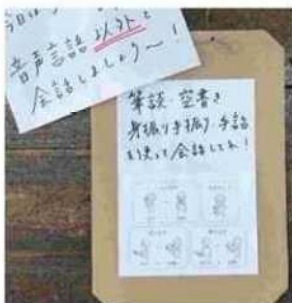 今日は
音声言語以外で
会話しましょう〜!
筆談・空書き
身振り手振り・手話
を使って会話してね!